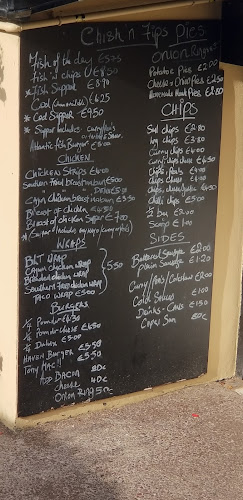 Chish n Fips Pies
Fish of the day £5.05
Fish n' chips £8.50
* Fish Supper £8.90
Cod £6.25
* Cod Supper £9.50
* Supper Includes curry/peas
Atlantic Fish Burger £5.00
CHICKEN
CHICKEN STRIPS £4.00
Southern fried breast
Cajun chicken breast
Breast of chicken £4.50
Breast of chicken Supper £7.00
WRAPS
BLT WRAP
Cajun chicken wrap
Breaded chicken wrap
Southern fried chicken wrap
5.50
TACO WRAP £5.00
BURGERS
1/4 Pounder £4.30
1/4 Pounder cheese £4.50
1/2 £5.00
HAVEN BURGER £5.50
TONY MAC £5.50
ADD BACON 80c
Cheese 40c
Onion Ring 50c
Onion Rings
Potatoe Pies £2.00
Cheese n Onion Pies £2.50
Homemade Meat Pies £2.80
CHIPS
Sml chips £2.80
lrg chips £3.80
Curry chips £4.00
Curry chips cheese £4.50
chips peas £4.00
chips cheese £4.00
chips
chilli chips £5.00
1/2 Bag £2.00
Scoop £1.00
SIDES
Battered Sausage £2.00
Plain Sausage £1.20
Curry/Peas/Coleslaw £2.00
Cold £1.00
Drinks - Cans £1.50
Capri Sun 80c